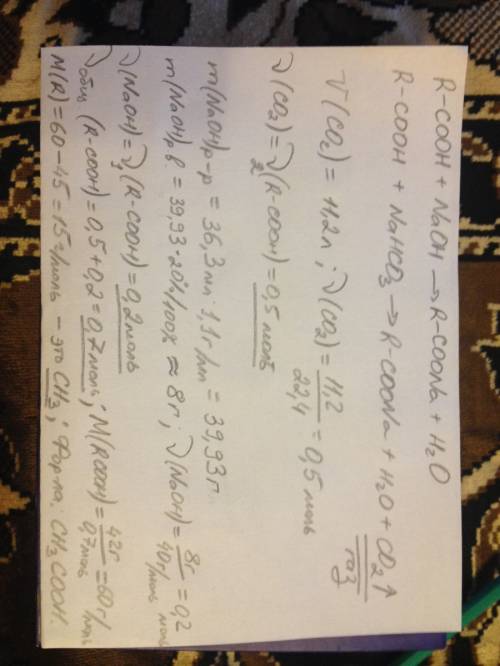 R-COOH + NaOH → R-COONa + H₂O
R-COOH + NaHCO₃ → R-COONa + H₂O + CO₂↑
газ
V(CO₂) = 11,2л ; ν(CO₂) = 11,2/22,4 = 0,5 моль
ν(CO₂) = ν₂(R-COOH) = 0,5 моль
m(NaOH)р-р = 36,3 мл · 1,1 г/мл = 39,93 г
m(NaOH)р.в. = 39,93·20%/100% ≈ 8г ; ν(NaOH) = 8г/40г/моль = 0,2 моль
ν(NaOH) = ν₁(R-COOH) = 0,2 моль
νобщ (R-COOH) = 0,5 + 0,2 = 0,7 моль ; M(RCOOH) = 42г/0,7моль = 60 г/моль
M(R) = 60 - 45 = 15 г/моль – это CH₃ ; Форм-ла: CH₃COOH.